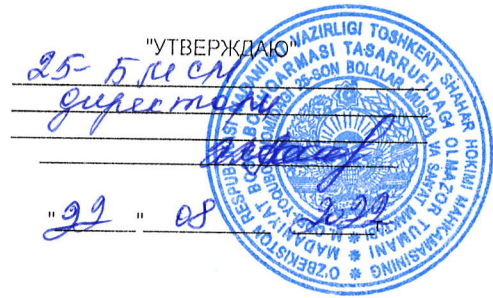 "УТВЕРЖДАЮ"
25- БМСМ
директори
"22" 08 2022 г.
O'ZBEKISTON RESPUBLIKASI MADANIYAT VAZIRLIGI TOSHKENT SHAHAR HOKIMI MAHKAMASINING
MADANIYAT BOSHQARMASI TASARRUFIDAGI OLMAZOR TUMANI
25-SON BOLALAR MUSIQA VA SAN'AT MAKTABI